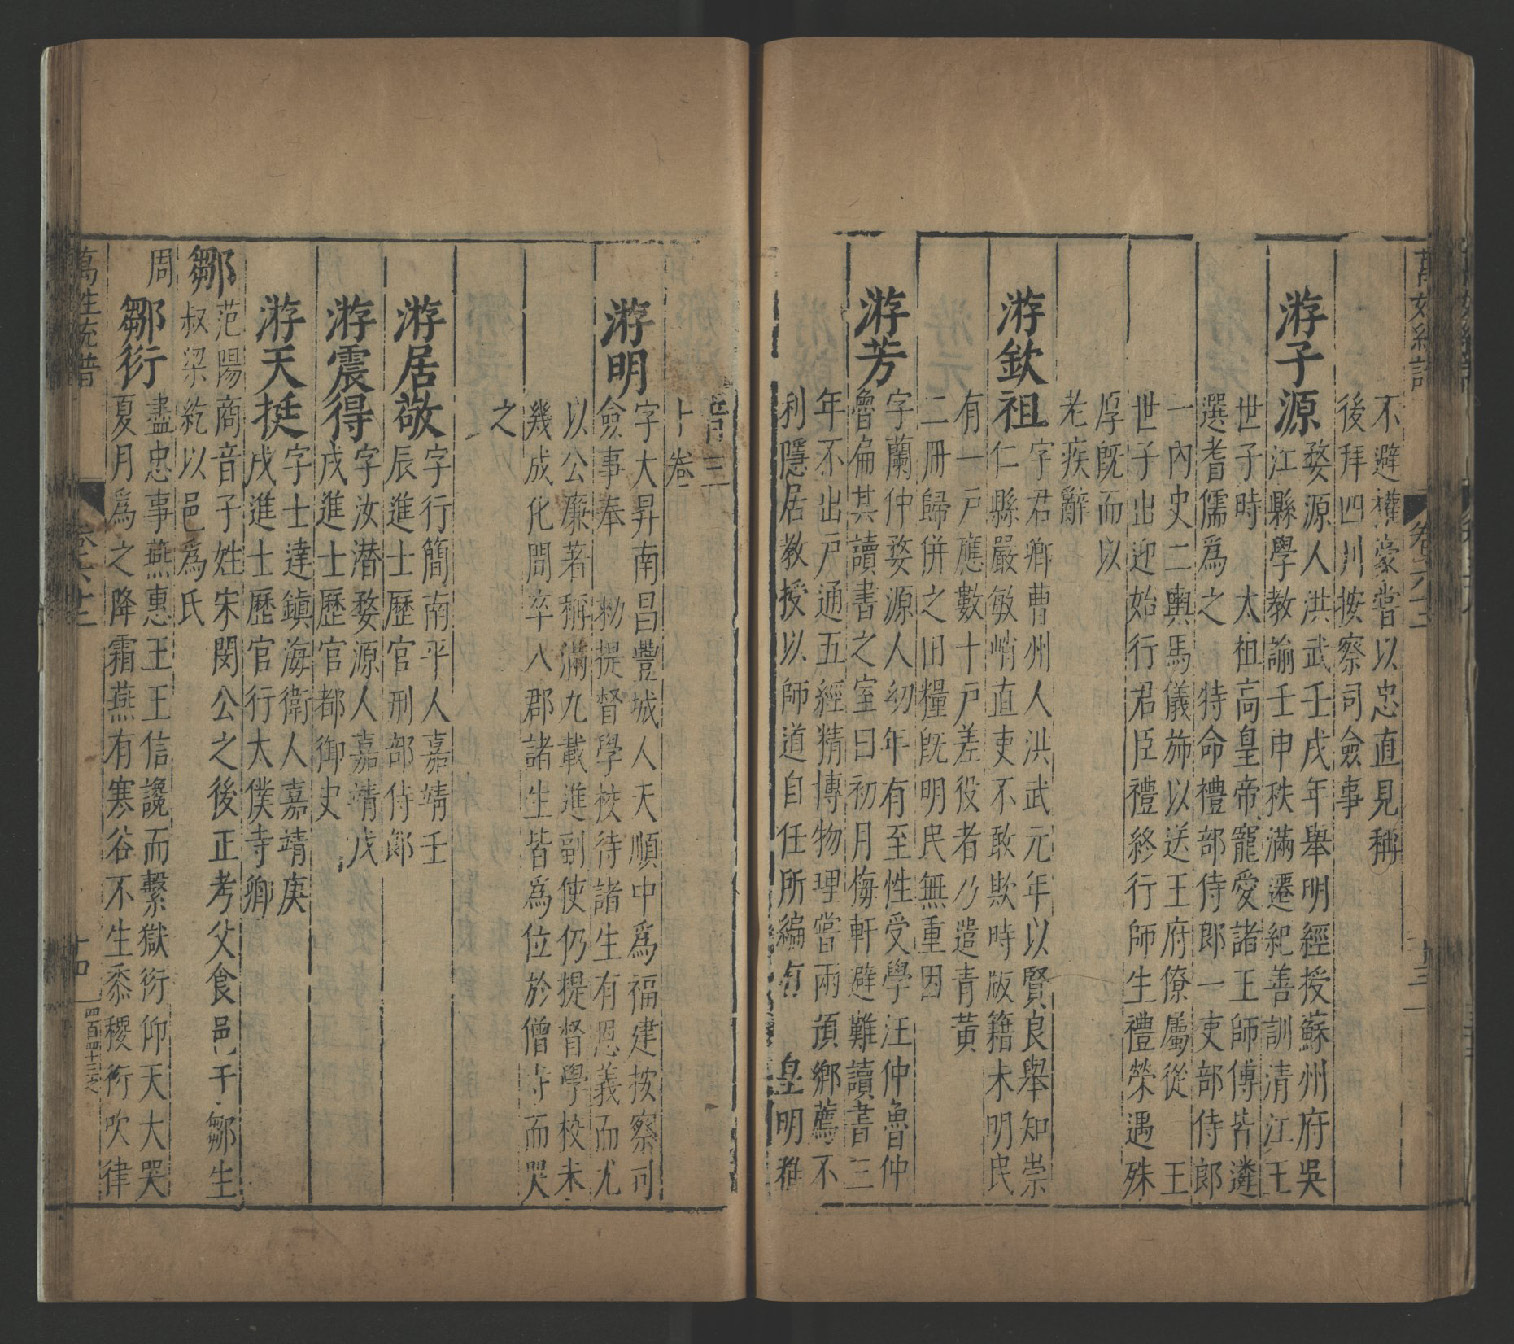 不避權豪嘗以忠直見稱
後拜四川按察司僉事
游子源
婺源人洪武壬戌年舉明經授蘇州府吳
江縣學教諭壬申秩滿遷紀善訓清江王
世子時 太祖高皇帝寵愛諸王師傅皆遴
選耆儒爲之 特命禮部侍郎一吏部侍郎
一內史二輿馬儀斾以送王府僚屬從 王
世子出迎始行君臣禮終行師生禮榮遇殊
厚既而以
老疾辭
游欽祖
字君卿曹州人洪武元年以賢良舉知崇
仁縣嚴敏峭直吏不敢欺時版籍未明民
有一戸應數十戸差役者乃遣青黃
二冊歸併之田糧旣明民無重困
游芳
字蘭仲婺源人幼年有至性受學汪仲魯仲
魯倫其讀書之室曰初月侮軒避難讀書三
年不出戸通五經精博物理嘗兩領鄉薦不
利隱居教授以師道自任所編有 皇明雅
音三
十卷
游明
字大昇南昌豐城人天順中爲福建按察司
僉事奉 勑提督學校待諸生有恩義而尤
以公廉著稱滿九載進副使仍提督學校未
幾成化間卒八郡諸生皆爲位於僧寺而哭
之
游居敬
字行簡南平人嘉靖壬
辰進士歷官刑部侍郎
游震得
字汝潛婺源人嘉靖戊
戌進士歷官都御史
游天挺
字士達鎮海衛人嘉靖庚
戌進士歷官行太僕寺卿
鄒
范陽商音子姓宋閔公之後正考父食邑于鄒生
叔梁紇以邑爲氏
周
鄒衍
盡忠事燕惠王王信讒而繫獄衍仰天大哭
夏月爲之降霜燕有寒谷不生黍稷衍吹律
萬姓統譜
卷六十二
十四